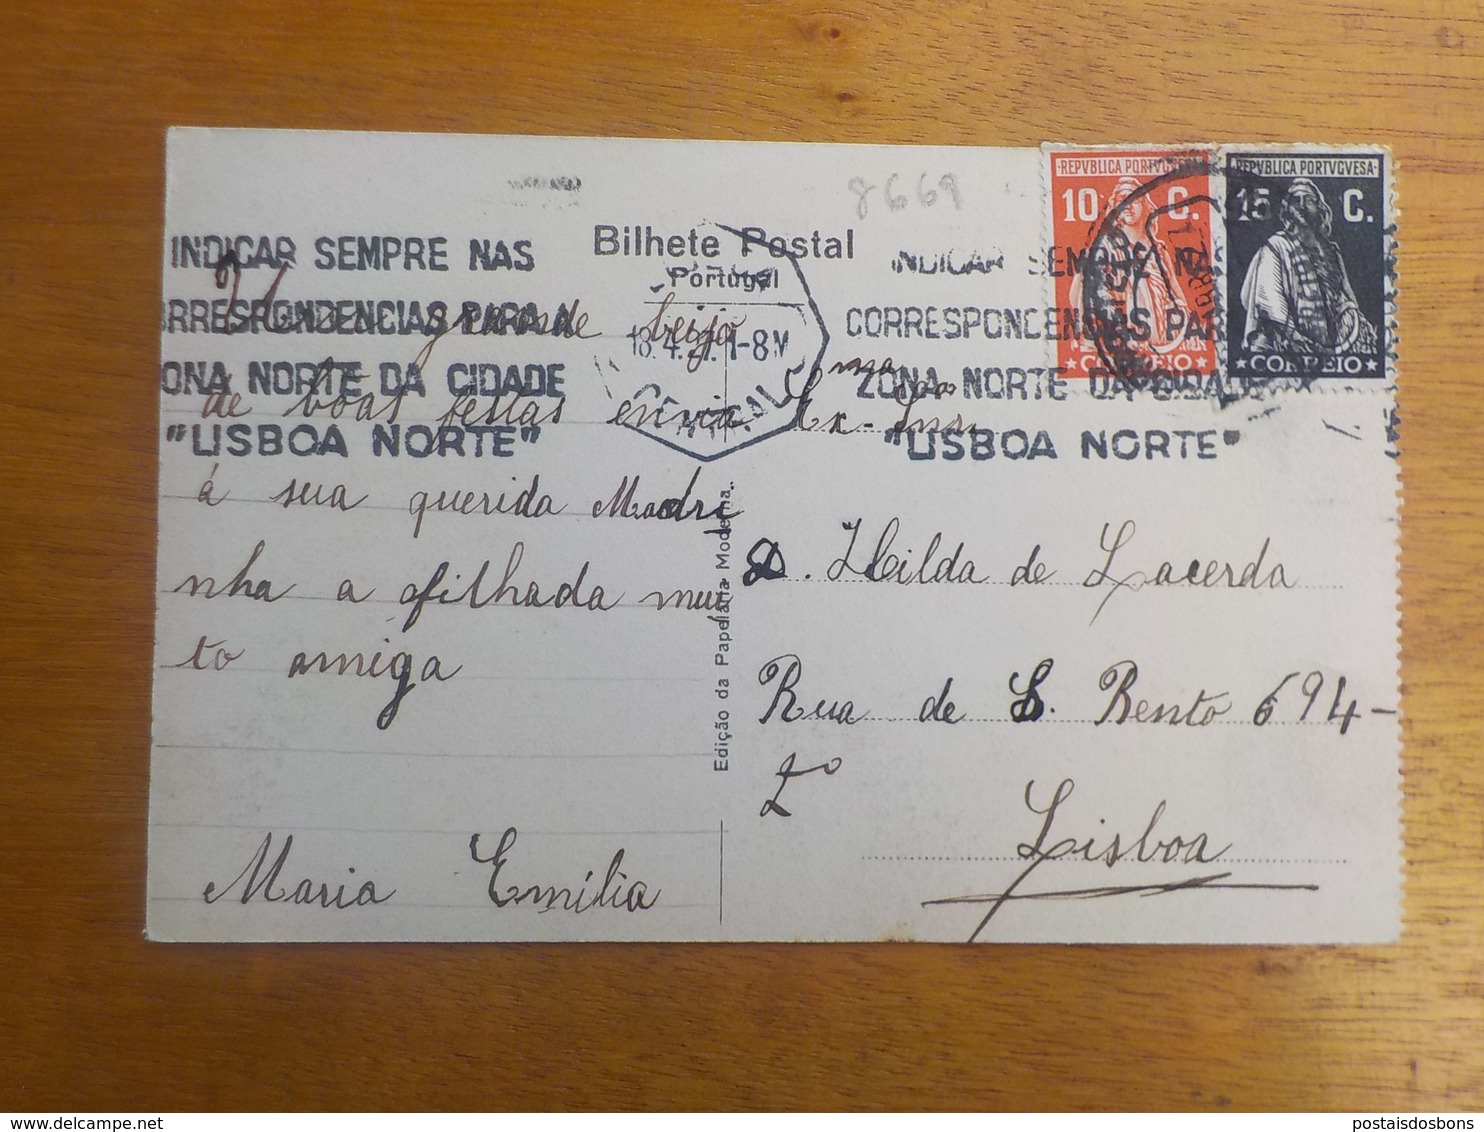 8669
Bilhete Postal
Portugal
REPVBLICA PORTVGVESA
10 C.
CORREIO
REPVBLICA PORTVGVESA
15 C.
CORREIO
INDICAR SEMPRE NAS
RRESPONDENCIAS PARA A
ONA NORTE DA CIDADE
"LISBOA NORTE"
18.4.27. 1-8M
INDICAR SEMPRE NAS
CORRESPONDENCIAS PARA
ZONA NORTE DA CIDADE
"LISBOA NORTE"
grande beijo
de boas festas envia
á sua querida Madri
nha a afilhada mui
to amiga
Maria Emilia
Edição da Papelaria Moderna.
Ex.ma Snra
D. Hilda de Lacerda
Rua de S. Bento 694-
2º
Lisboa
postaisdosbons